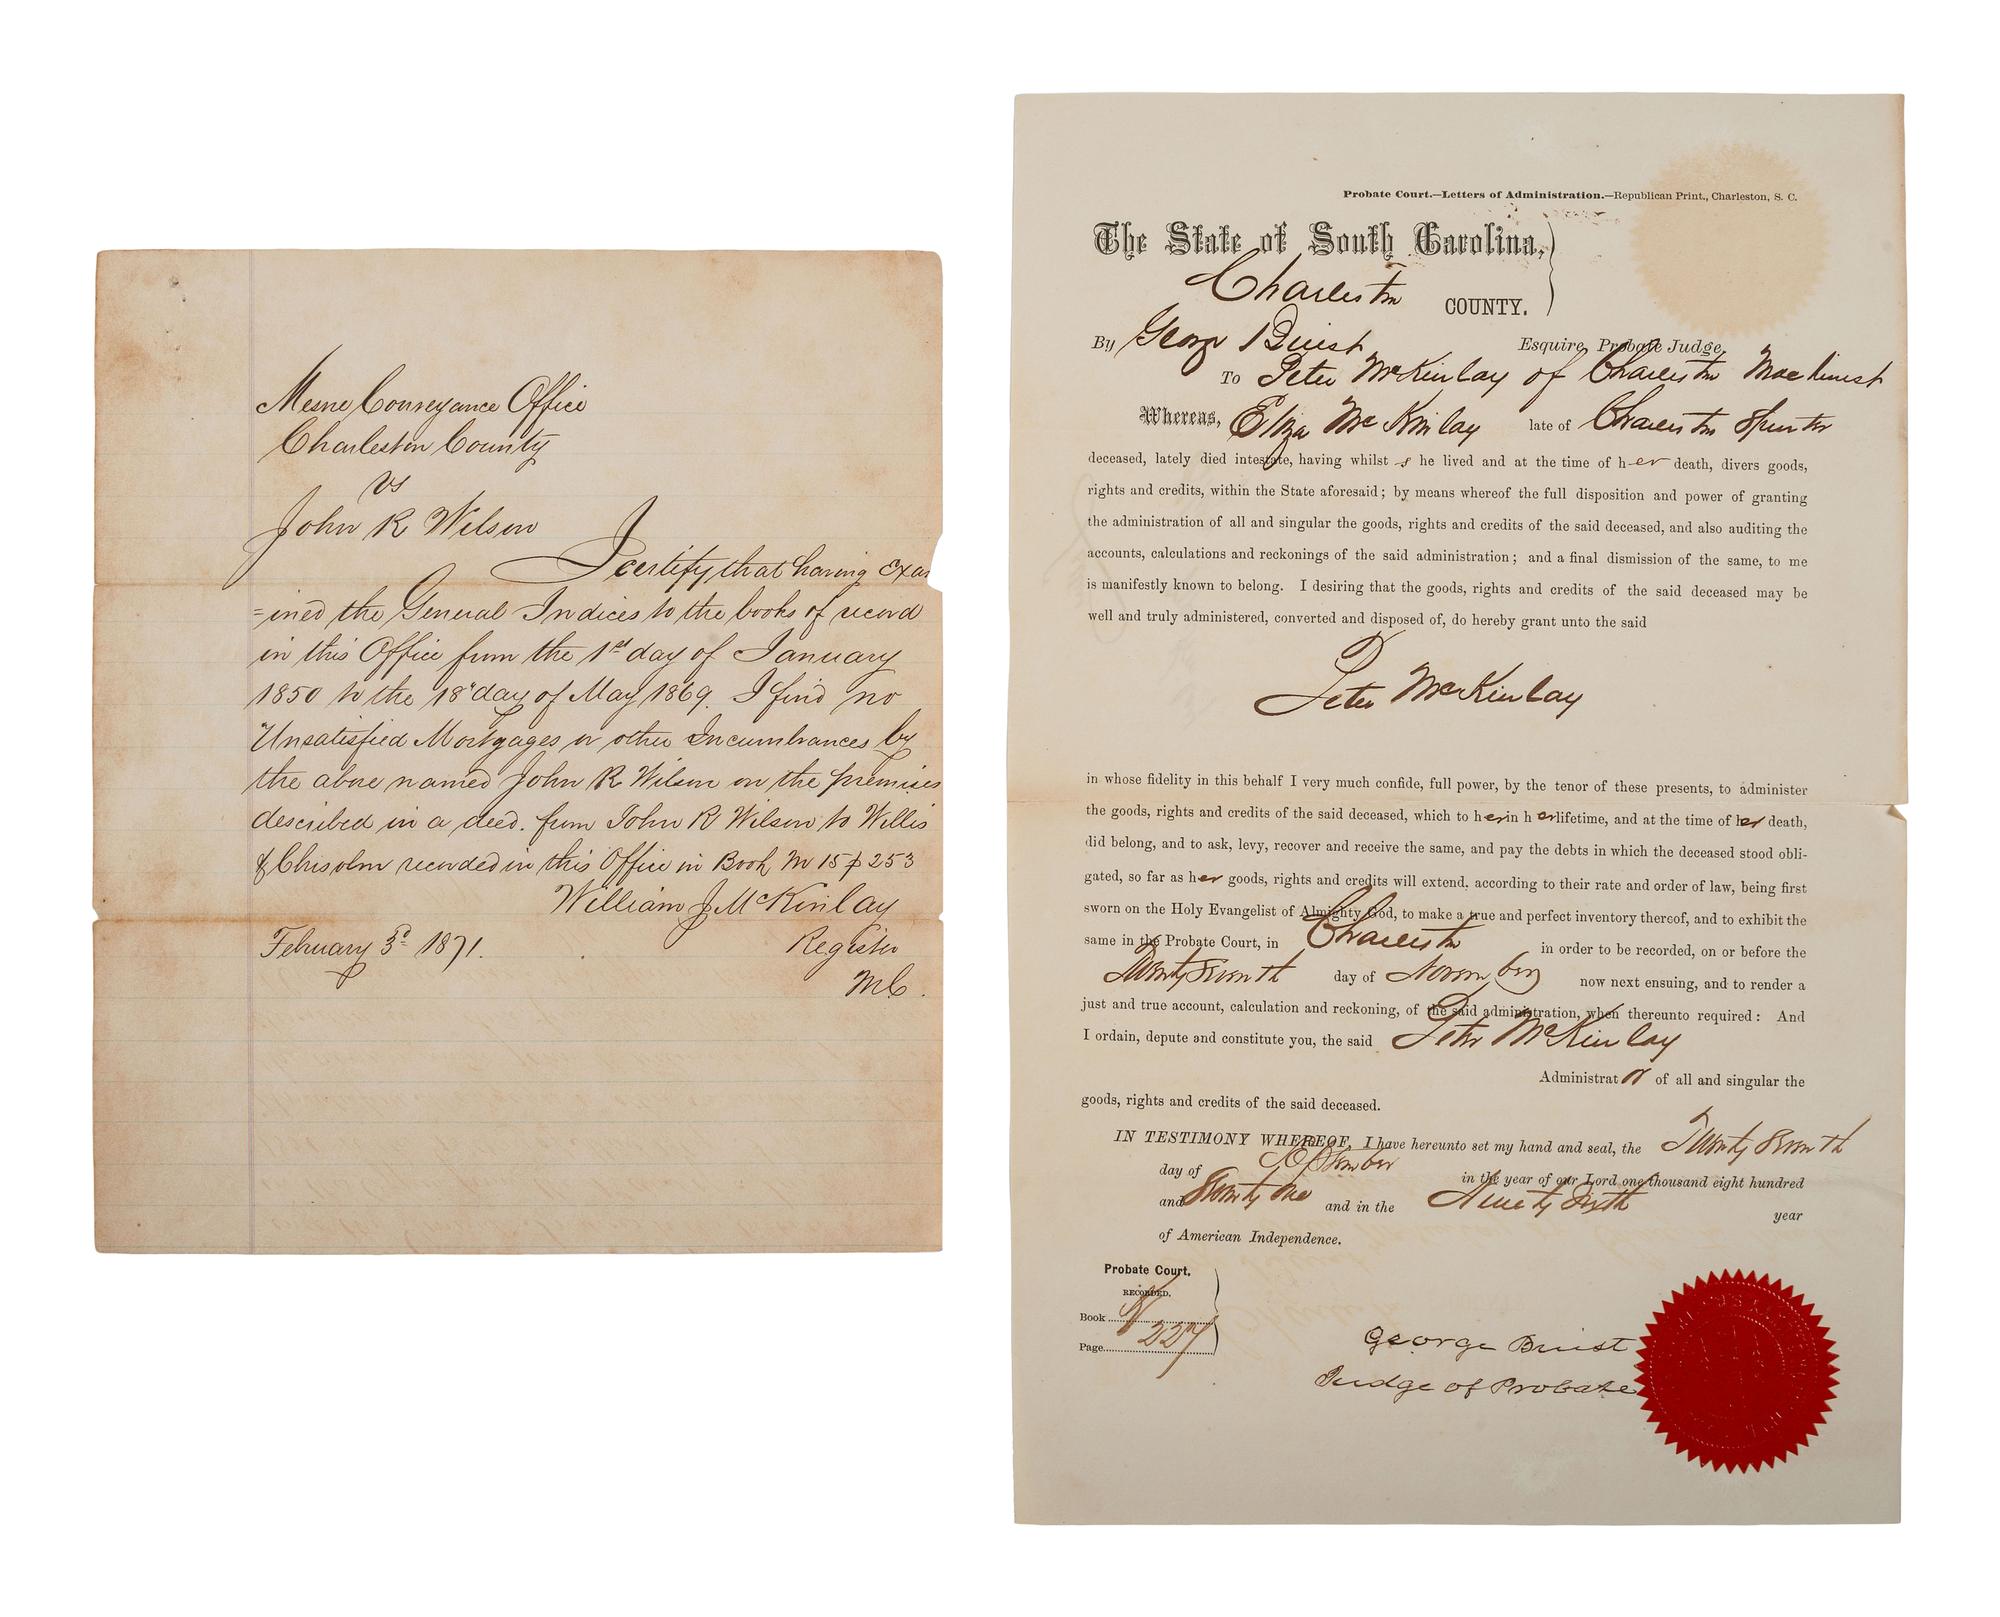 Mesne Conveyance Office
Charleston County
vs
John R Wilson
I certify that having Exam
=ined the General Indices to the books of record
in this Office from the 1st day of January
1850 to the 18" day of May 1869. I find no
Unsatisfied Mortgages or other Incumbrances by
the above named John R Wilson on the premises
described in a deed. from John R Wilson to Willis
& Chisolm recorded in this Office in Book M 15 p 253
William J McKinlay
February 3d 1871.
Register
M.C.
Probate Court.—Letters of Administration.—Republican Print., Charleston, S. C.
The State of South Carolina,
Charleston COUNTY.
By George Buist Esquire, Probate Judge,
To Peter McKinlay of Charleston Machinist
Whereas, Eliza McKinlay late of Charleston Spinster
deceased, lately died intestate, having whilst s he lived and at the time of h er death, divers goods,
rights and credits, within the State aforesaid; by means whereof the full disposition and power of granting
the administration of all and singular the goods, rights and credits of the said deceased, and also auditing the
accounts, calculations and reckonings of the said administration; and a final dismission of the same, to me
is manifestly known to belong. I desiring that the goods, rights and credits of the said deceased may be
well and truly administered, converted and disposed of, do hereby grant unto the said
Peter McKinlay
in whose fidelity in this behalf I very much confide, full power, by the tenor of these presents, to administer
the goods, rights and credits of the said deceased, which to her in h er lifetime, and at the time of her death,
did belong, and to ask, levy, recover and receive the same, and pay the debts in which the deceased stood obli-
gated, so far as her goods, rights and credits will extend, according to their rate and order of law, being first
sworn on the Holy Evangelist of Almighty God, to make a true and perfect inventory thereof, and to exhibit the
same in the Probate Court, in Charleston in order to be recorded, on or before the
Twenty Seventh day of November now next ensuing, and to render a
just and true account, calculation and reckoning, of the said administration, when thereunto required: And
I ordain, depute and constitute you, the said Peter McKinlay
Administrat or of all and singular the
goods, rights and credits of the said deceased.
IN TESTIMONY WHEREOF, I have hereunto set my hand and seal, the Twenty Seventh
day of September in the year of our Lord one thousand eight hundred
and Seventy One and in the Ninety Sixth year
of American Independence.
Probate Court.
RECORDED.
Book N
Page 227
George Buist
Judge of Probate